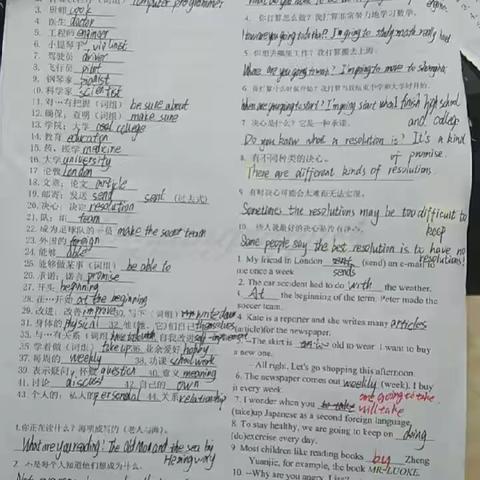 computer programmer
3. 厨师 cook
4. 医生 doctor
5. 工程师 engineer
6. 小提琴手 violinist
7. 驾驶员 driver
8. 飞行员 pilot
9. 钢琴家 pianist
10. 科学家 scientist
11. 对···有把握（词组） be sure about
12. 确保；查明（词组） make sure
13. 学院；大学 college
14. 教育 education
15. 药；医学 medicine
16. 大学 university
17. 伦敦 London
18. 文章；论文 article
19. 邮寄；发送 send sent （过去式）
20. 决心；决定 resolution
21. 队；组 team
22. 成为足球队的一员 make the soccer team
23. 外国的 foreign
24. 能够 able
25. 能够做某事（词组） be able to
26. 承诺；诺言 promise
27. 开头 beginning
28. 在···开始 at the beginning
29. 改进；改善 improve 30. 写下（词组） write down
31. 身体的 physical 32. 他(她、它)们自己 themselves
33. 与···有关系（词组） 自我改进 self-improvement
35. 学着做（词组） take up 36. 业余爱好 hobby
37. 每周的 weekly 38. 功课 schoolwork
39. 表示疑问；怀疑 question 40. 意义 meaning
41. 讨论 discuss 42. 自己的 own
43. 个人的；私人的 personal 44. 关系 relationship
1. 你正在读什么？海明威写的《老人与海》。
What are you reading? The Old Man and the sea by
Hemingway
2. 不是每个人知道他们想成为什么。
4. 你打算怎么做？我打算非常努力地学习数学。
How are you going to do that? I'm going to study math really hard
5. 你想去哪里工作？我打算搬去上海。
Where are you going to work? I'm going to move to Shanghai.
When are you going to start? I'm going start when I finish high school
and college
7. 决心是什么？它是一种承诺。
Do you know what a resolution is? It's a kind
of promise.
8. 有不同种类的决心。
There are different kinds of resolutions.
9. 有时决心可能会太难而无法实现。
Sometimes the resolutions may be too difficult to
keep
10. 一些人说最好的决心是没有决心。
Some people say the best resolution is to have no
resolutions!
1. My friend in London sent (send) an e-mail to
me once a week sends
2. The car accident had to do with the weather.
3. At the beginning of the term, Peter made the
soccer team.
4. Kate is a reporter and she writes many articles
(article)for the newspaper.
5. --The skirt is old to wear. I want to buy
a new one.
All right. Let's go shopping this afternoon.
6. The newspaper comes out weekly (week). I buy
it every week.
are going to take
7. I wonder when you to take will take
(take)up Japanese as a second foreign language.
8. To stay healthy, we are going to keep on doing
(do)exercise every day.
9. Most children like reading books by Zheng
Yuanjie, for example, the book MR·LUOKE.
10. --Why are you angry, Lisa?